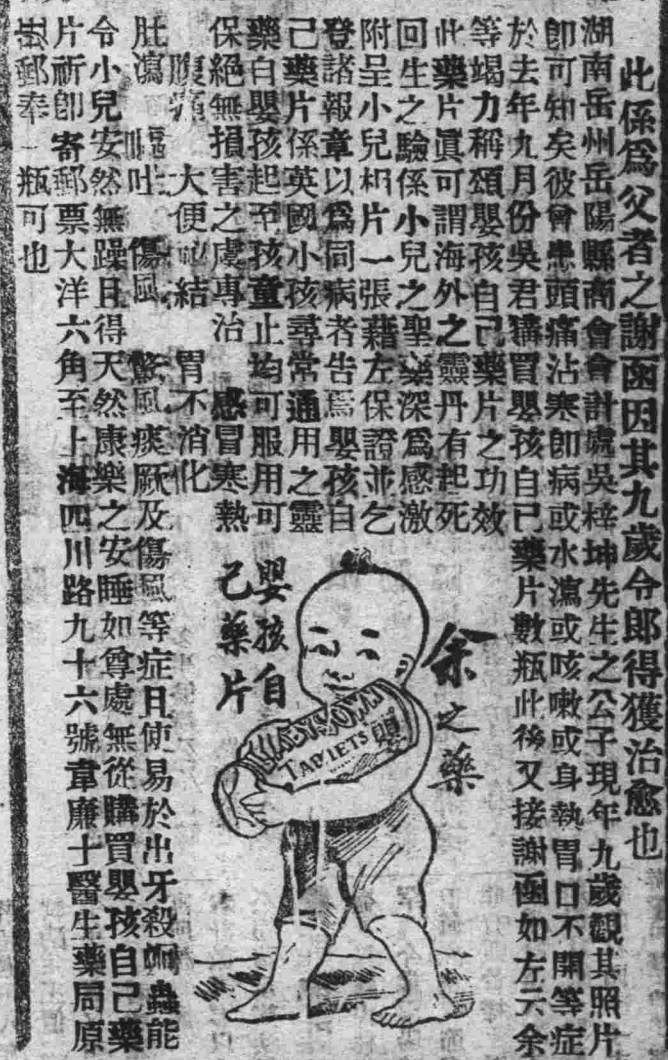 此係爲父者之謝函因其九歲令郎得獲治愈也
湖南岳州岳陽縣商會會計處吳梓坤先生之公子現年九歲觀其照片
卽可知矣彼曾患頭痛沾寒卽病或水瀉或咳嗽或身執胃口不開等症
於去年九月份吳君購買嬰孩自己藥片數瓶此後又接謝函如左云余
等竭力稱頌嬰孩自己藥片之功效
此藥片眞可謂海外之靈丹有起死
回生之驗係小兒之聖藥深爲感激
附呈小兒相片一張藉左保證並乞
登諸報章以爲同病者告焉嬰孩自
己藥片係英國小孩尋常通用之靈
藥白嬰孩起至孩童止均可服用可
保絕無損害之虞專治 感冒寒熱
腹痛 大便 結 胃不消化
肚瀉 嘔吐 傷風 驚風痰厥及傷風等症且使易於出牙殺 蟲能
令小兒安然無躁且得天然康樂之安睡如尊處無從購買嬰孩自己藥
片祈卽寄郵票大洋六角至上海四川路九十六號韋廉士醫生藥局原
班郵奉一瓶可也
余之藥
BABY'S OWN
TABLETS
嬰孩自
己藥片